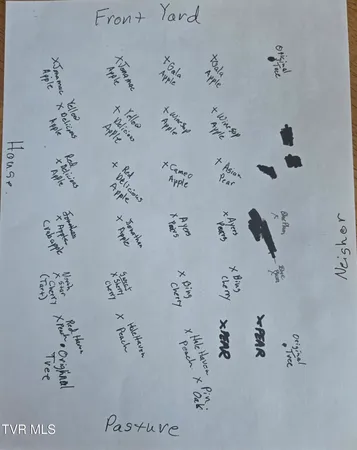 Front Yard
Original
Tree
X Jonamac
Apple
X Jonamac
Apple
X Gala
Apple
X Gala
Apple
Yellow
X Delicious
Apple
Yellow
X Delicious
Apple
X Winesap
Apple
X Winesap
Apple
House
Red
X Delicious
Apple
X Red
Delicious
Apple
X Cameo
Apple
X Asian
Pear
Neighbor
X Apple
Crabapple
X Jonathan
Apple
X Ayers
Pears
X Ayers
Pears
North
X Star
Cherry
(Tart)
X Sour
Cherry
X Bing
Cherry
X Bing
Cherry
Red Haven
X Peach
Original
Tree
HaleHaven
X Peach
X HaleHaven
Peach
X Pin
Oak
X PEAR
X PEAR
Original
Tree
Pasture
TVR MLS